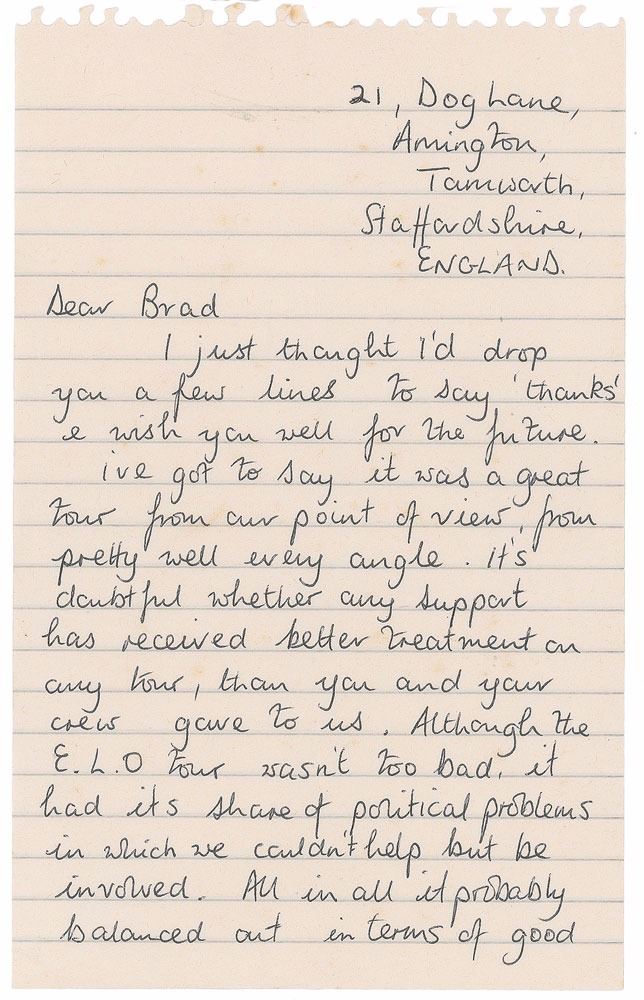 21, Dog Lane,
Amington,
Tamworth,
Staffordshire,
ENGLAND.
Dear Brad
I just thought I'd drop
you a few lines to say 'thanks'
e wish you well for the future.
i've got to say it was a great
tour from our point of view, from
pretty well every angle. It's
doubtful whether any support
has received better treatment on
any tour, than you and your
crew gave to us. Although the
E.L.O tour wasn't too bad, it
had it's share of political problems
in which we couldn't help but be
involved. All in all it probably
balanced out in terms of good